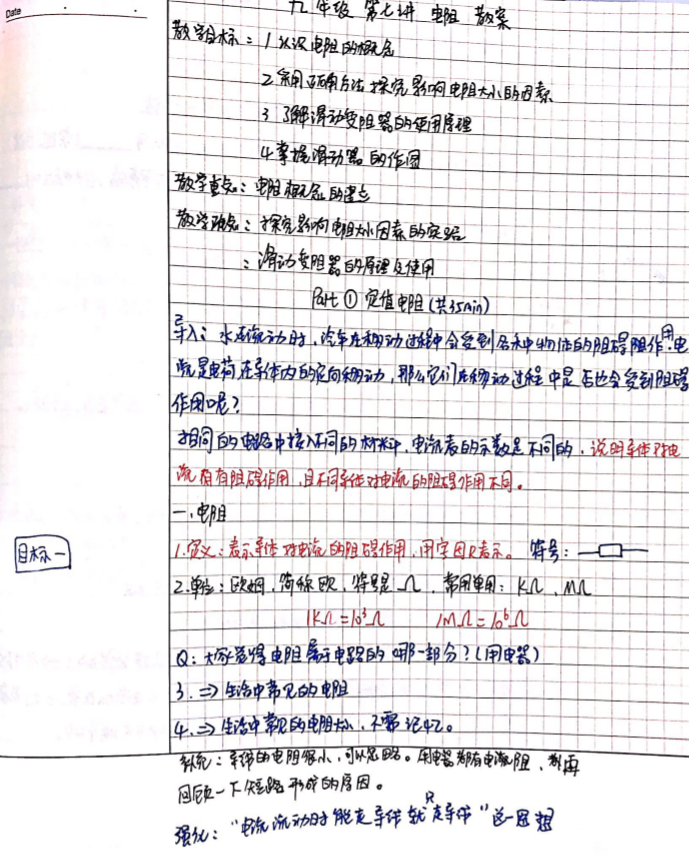 Date
九年级 第七讲 电阻 教案
教学目标：1 认识电阻的概念
2 常用正确方法探究影响电阻大小的因素
3 了解滑动变阻器的使用原理
4 掌握滑动器的作图
教学重点：电阻概念的建立
教学难点：探究影响电阻大小因素的实验
：滑动变阻器的原理及使用
Part ① 定值电阻(共35min)
导入：水在流动时，汽车在移动过程中会受到各种物体的阻碍作用，电
流是电荷在导体内的定向移动，那么它们在移动过程中是否也会受到阻碍
作用呢？
相同的电路中接入不同的材料，电流表的示数是不同的，说明导体对电
流有阻碍作用，且不同导体对电流的阻碍作用不同。
一、电阻
目标一
1.定义：表示导体对电流的阻碍作用，用字母R表示。符号：
2.单位：欧姆，简称欧，符号是Ω，常用单用：KΩ，MΩ
1KΩ=10³Ω 1MΩ=10⁶Ω
Q：大家觉得电阻属于电路的哪一部分？(用电器)
3.⇒生活中常见的电阻
4.⇒生活中常见的电阻大小，不需记忆。
补充：导体的电阻很小，可以忽略。用电器都有电流阻，再
回顾一下短路形成的原因。
强化："电流流动时能走导体就R走导体"这一思想